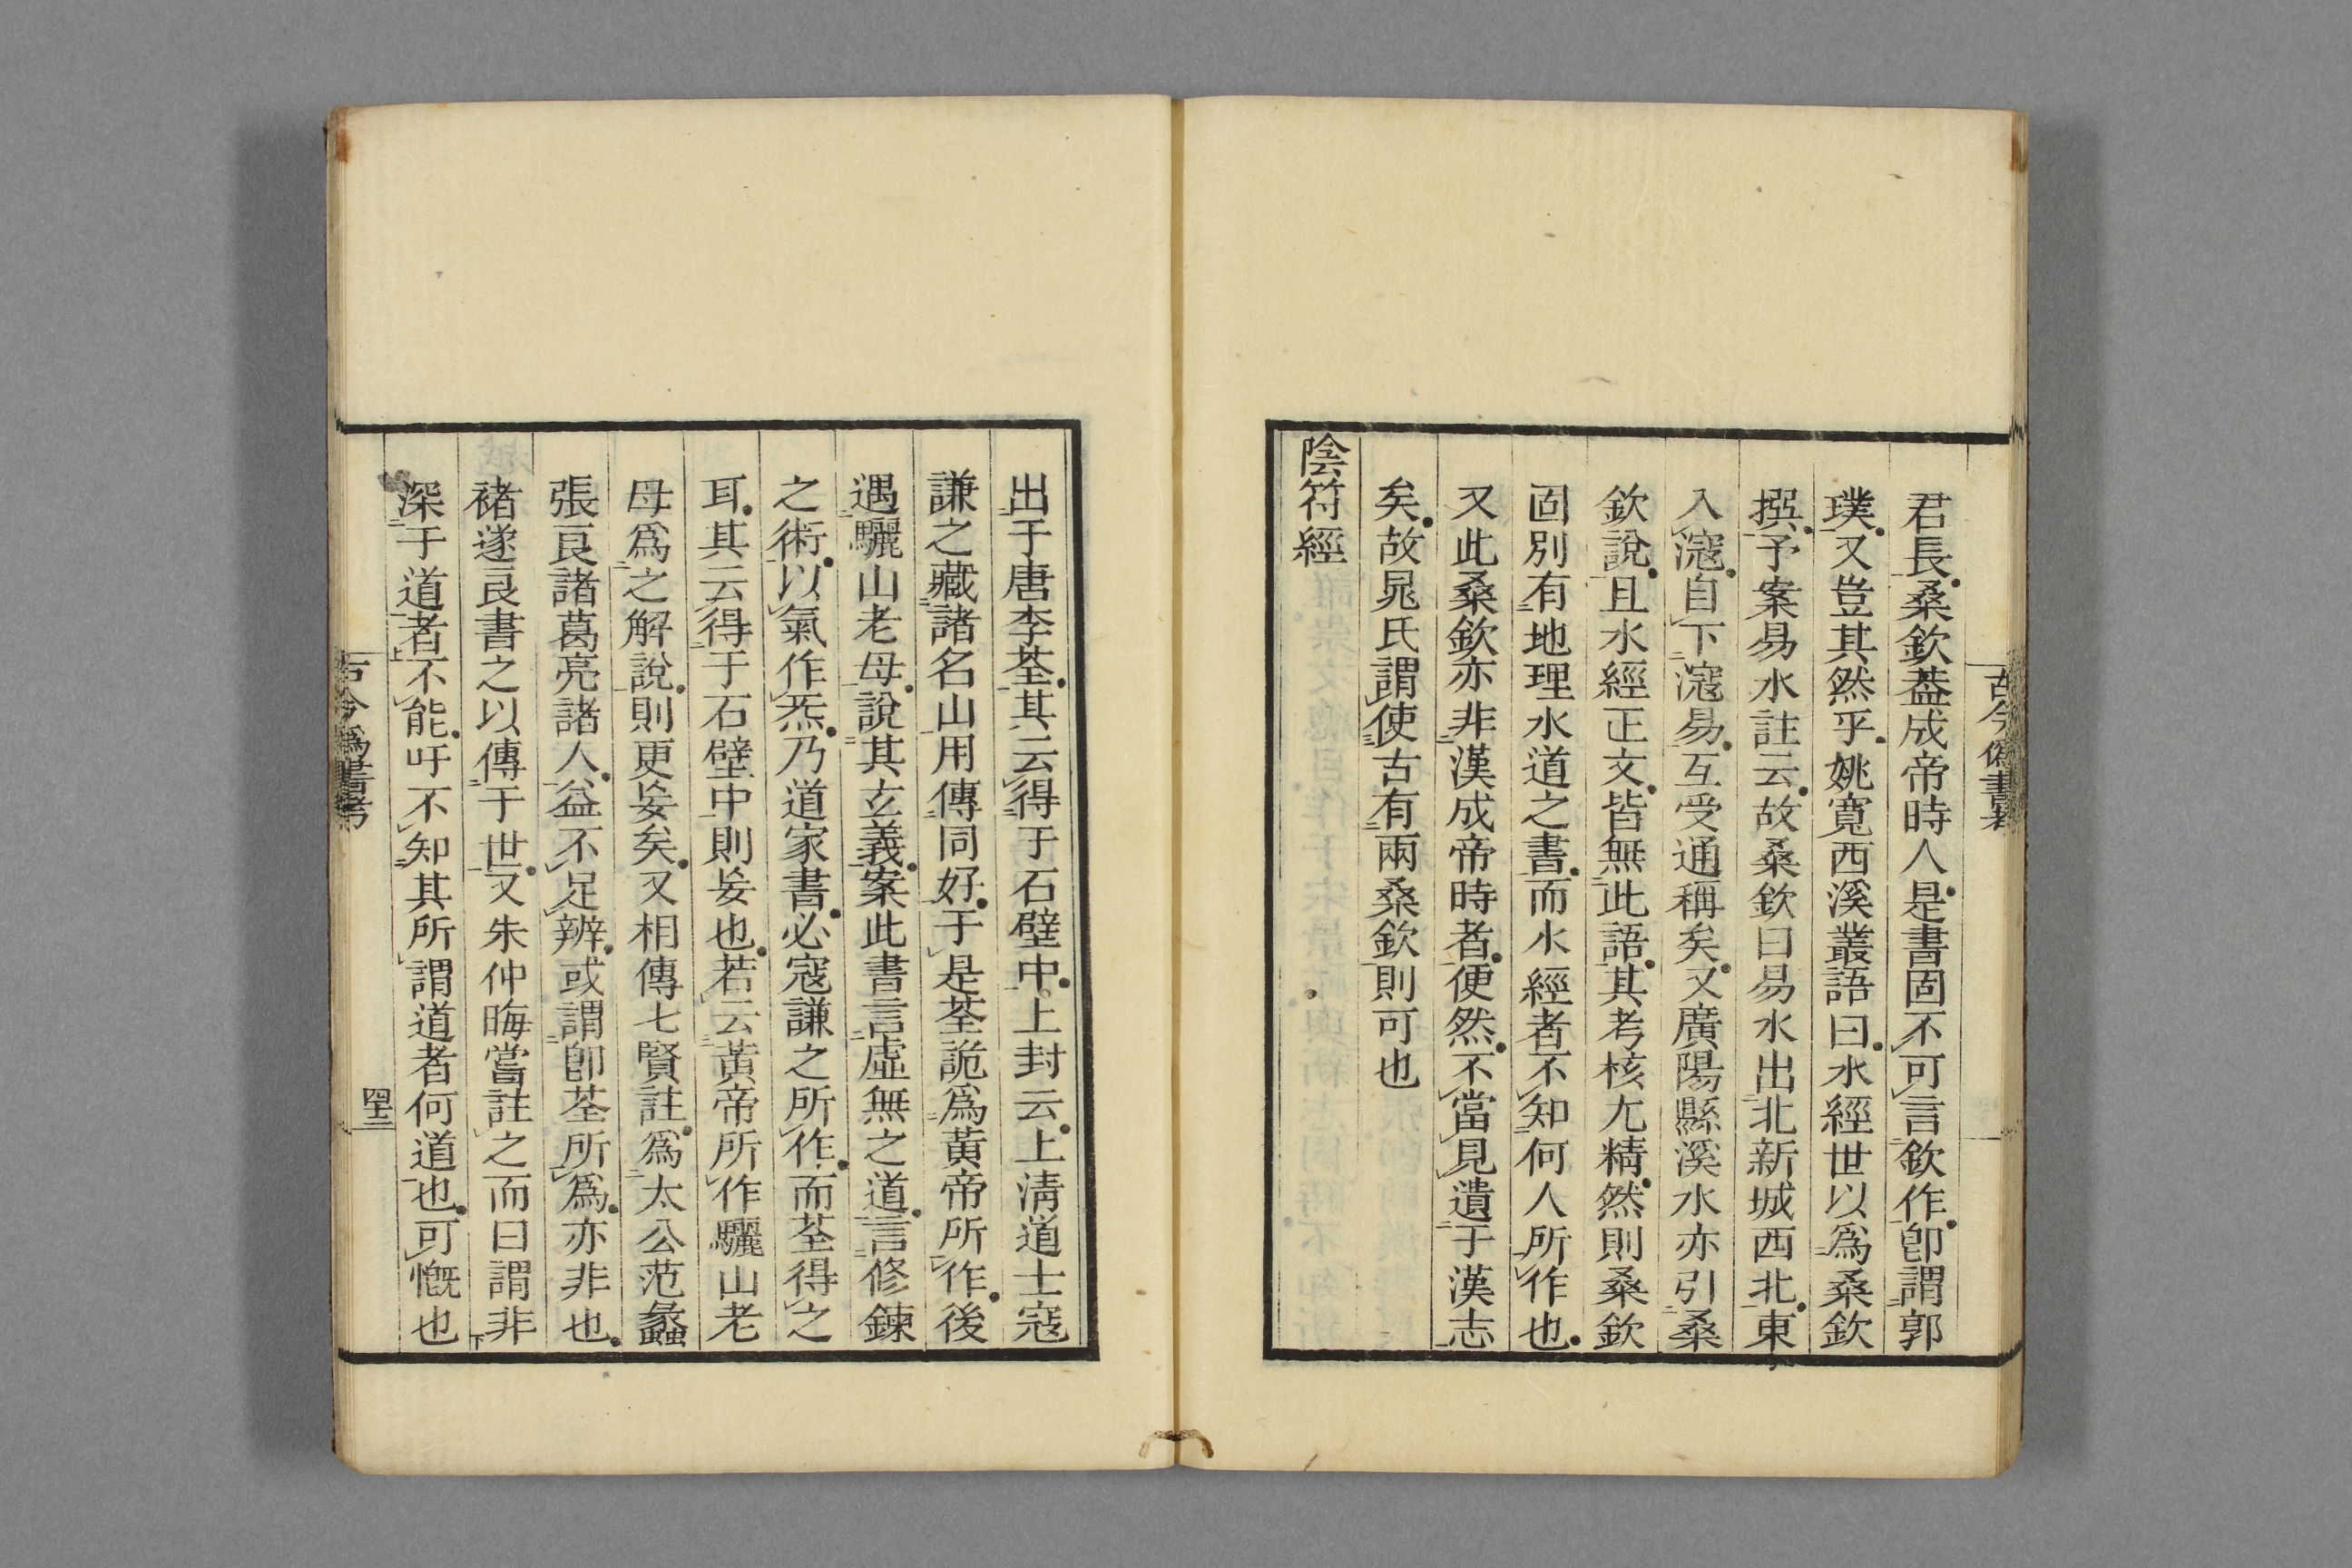 古今僞書考
君長桑欽葢成帝時人是書固不可言欽作卽謂郭
璞又豈其然乎姚寬西溪叢語曰水經世以爲桑欽
撰予案易水註云故桑欽曰易水出北新城西北東
入㴾自下㴾易互受通稱矣又廣陽縣溪水亦引桑
欽說且水經正文皆無此語其考核尤精然則桑欽
固別有地理水道之書而水經者不知何人所作也
又此桑欽亦非漢成帝時者便然不當見遺于漢志
矣故晁氏謂使古有兩桑欽則可也
陰符經
出于唐李荃其云得于石壁中上封云上清道士寇
謙之藏諸名山用傳同好于是荃詭爲黃帝所作後
遇驪山老母說其玄義案此書言虛無之道言修鍊
之術以氣作炁乃道家書必寇謙之所作而荃得之
耳其云得于石壁中則妄也若云黃帝所作驪山老
母爲之解說則更妄矣又相傳七賢註爲太公范蠡
張良諸葛亮諸人益不足辨或謂卽荃所爲亦非也
褚遂良書之以傳于世又朱仲晦嘗註之而曰謂非
深于道者不能吁不知其所謂道者何道也可慨也
古今爲書考
四三